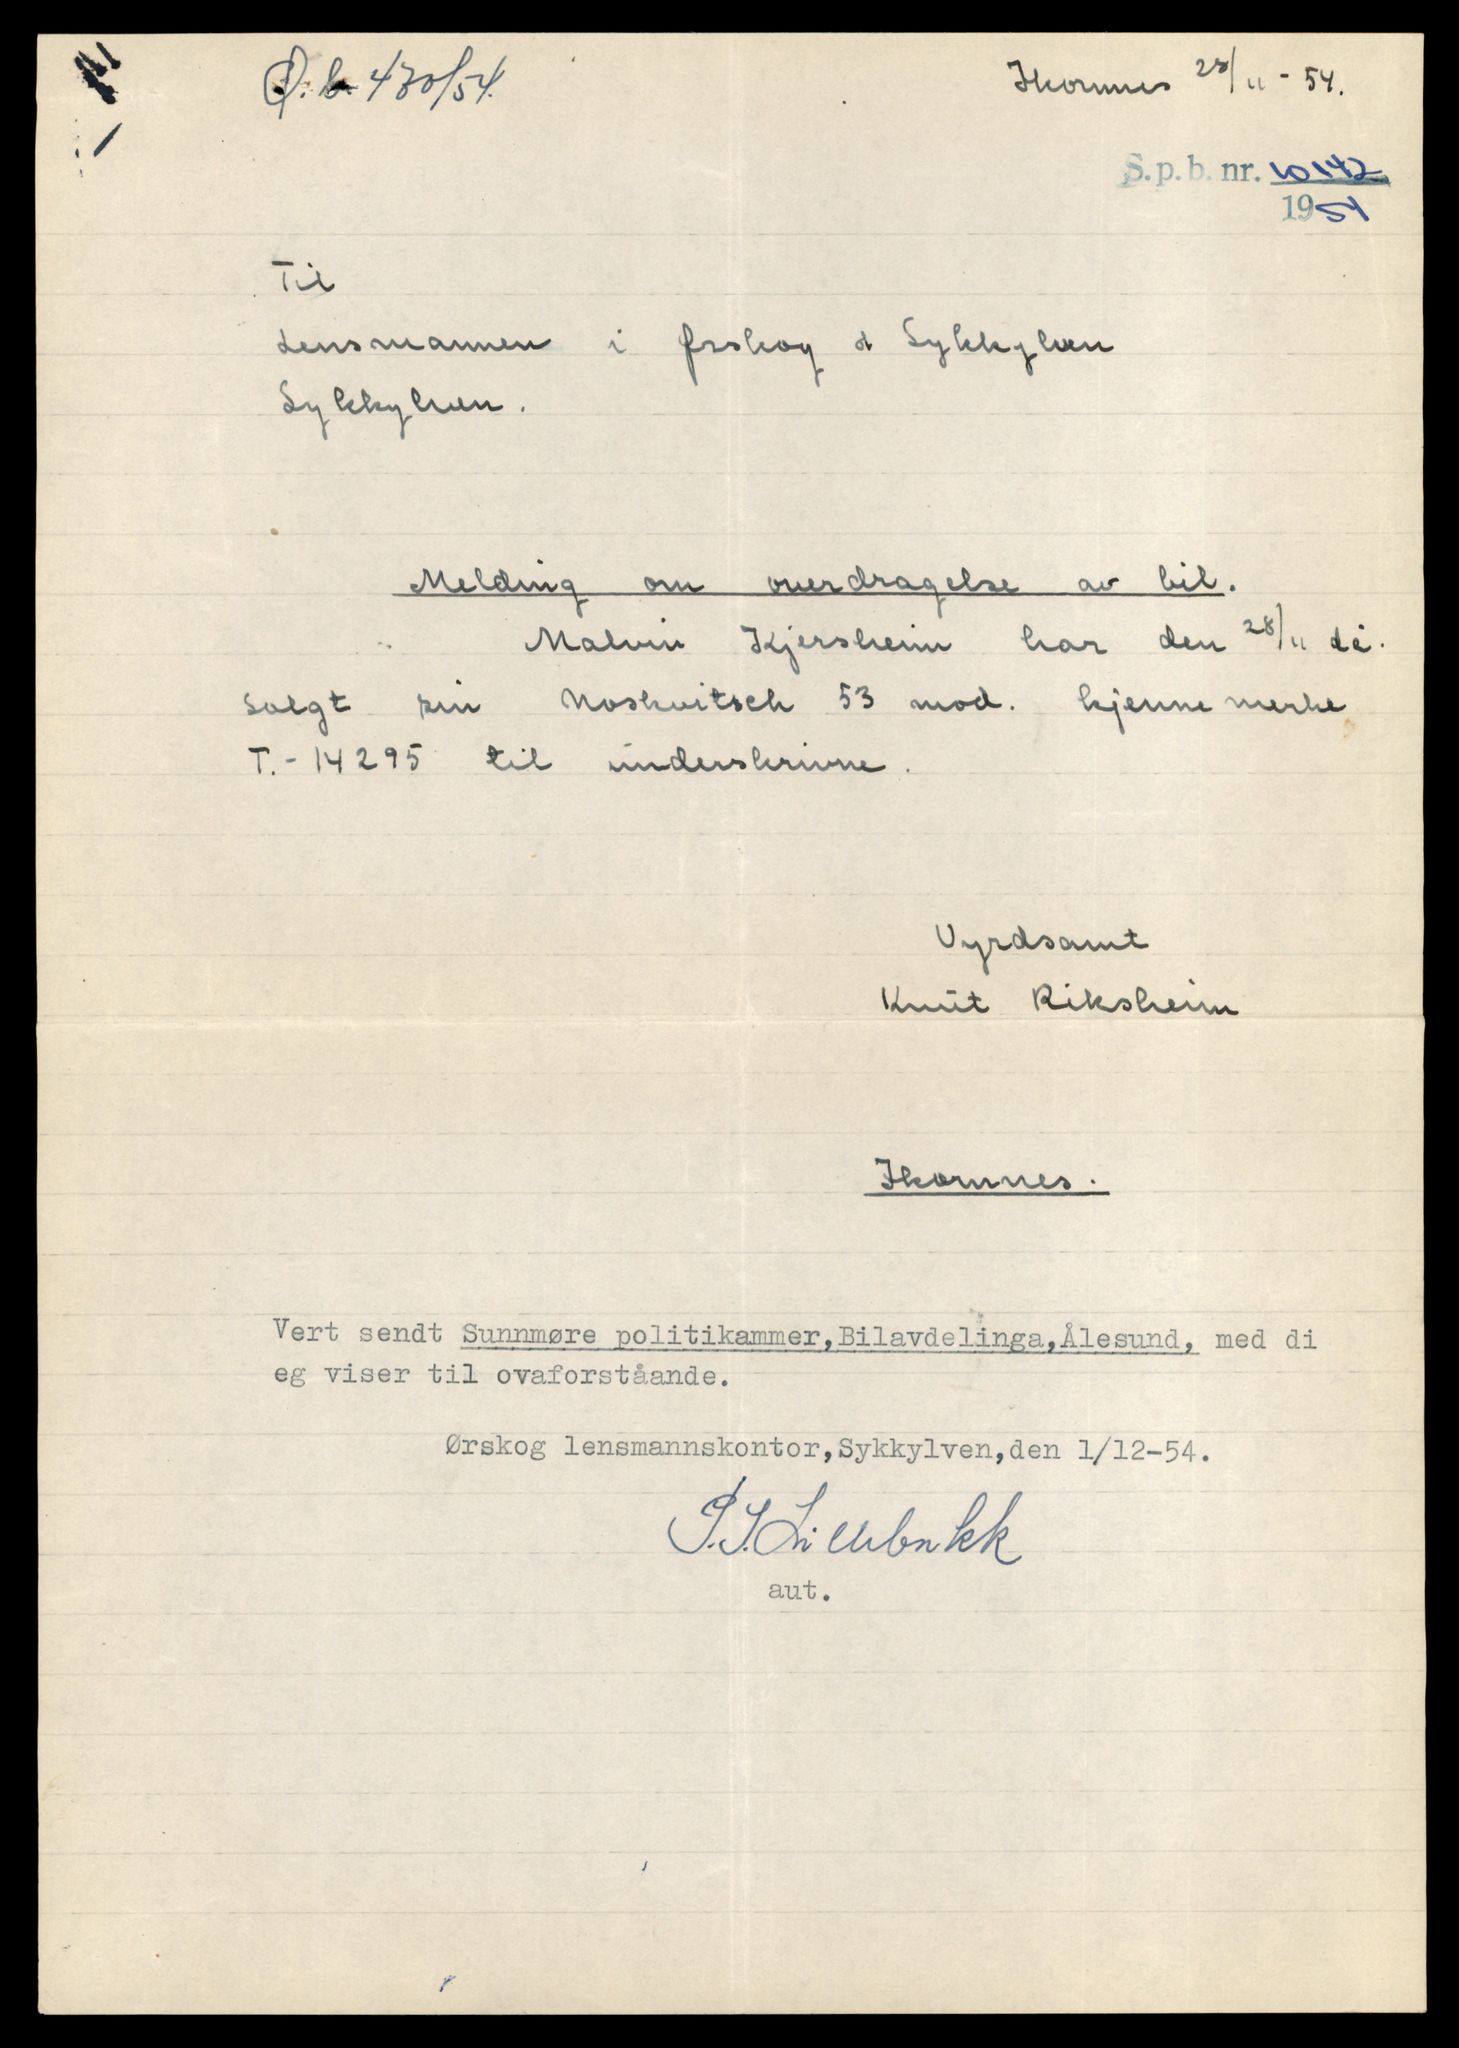 J.b. 430/54.
Ikornnes 28/11 - 54.
S.p.b. nr. 10142
1954
Til
Lensmannen i Ørskog & Sykkylven
Sykkylven.
Melding om overdragelse av bil.
Malvin Kjersheim har den 28/11 då.
solgt sin Moskvitsch 53 mod. kjennemerke
T.- 14295 til underskrivne.
Vyrdsamt
Knut Riksheim
Ikornnes.
Vert sendt Sunnmøre politikammer,Bilavdelinga,Ålesund, med di
eg viser til ovaforståande.
Ørskog lensmannskontor,Sykkylven,den 1/12-54.
P.I. Lillebakk
aut.